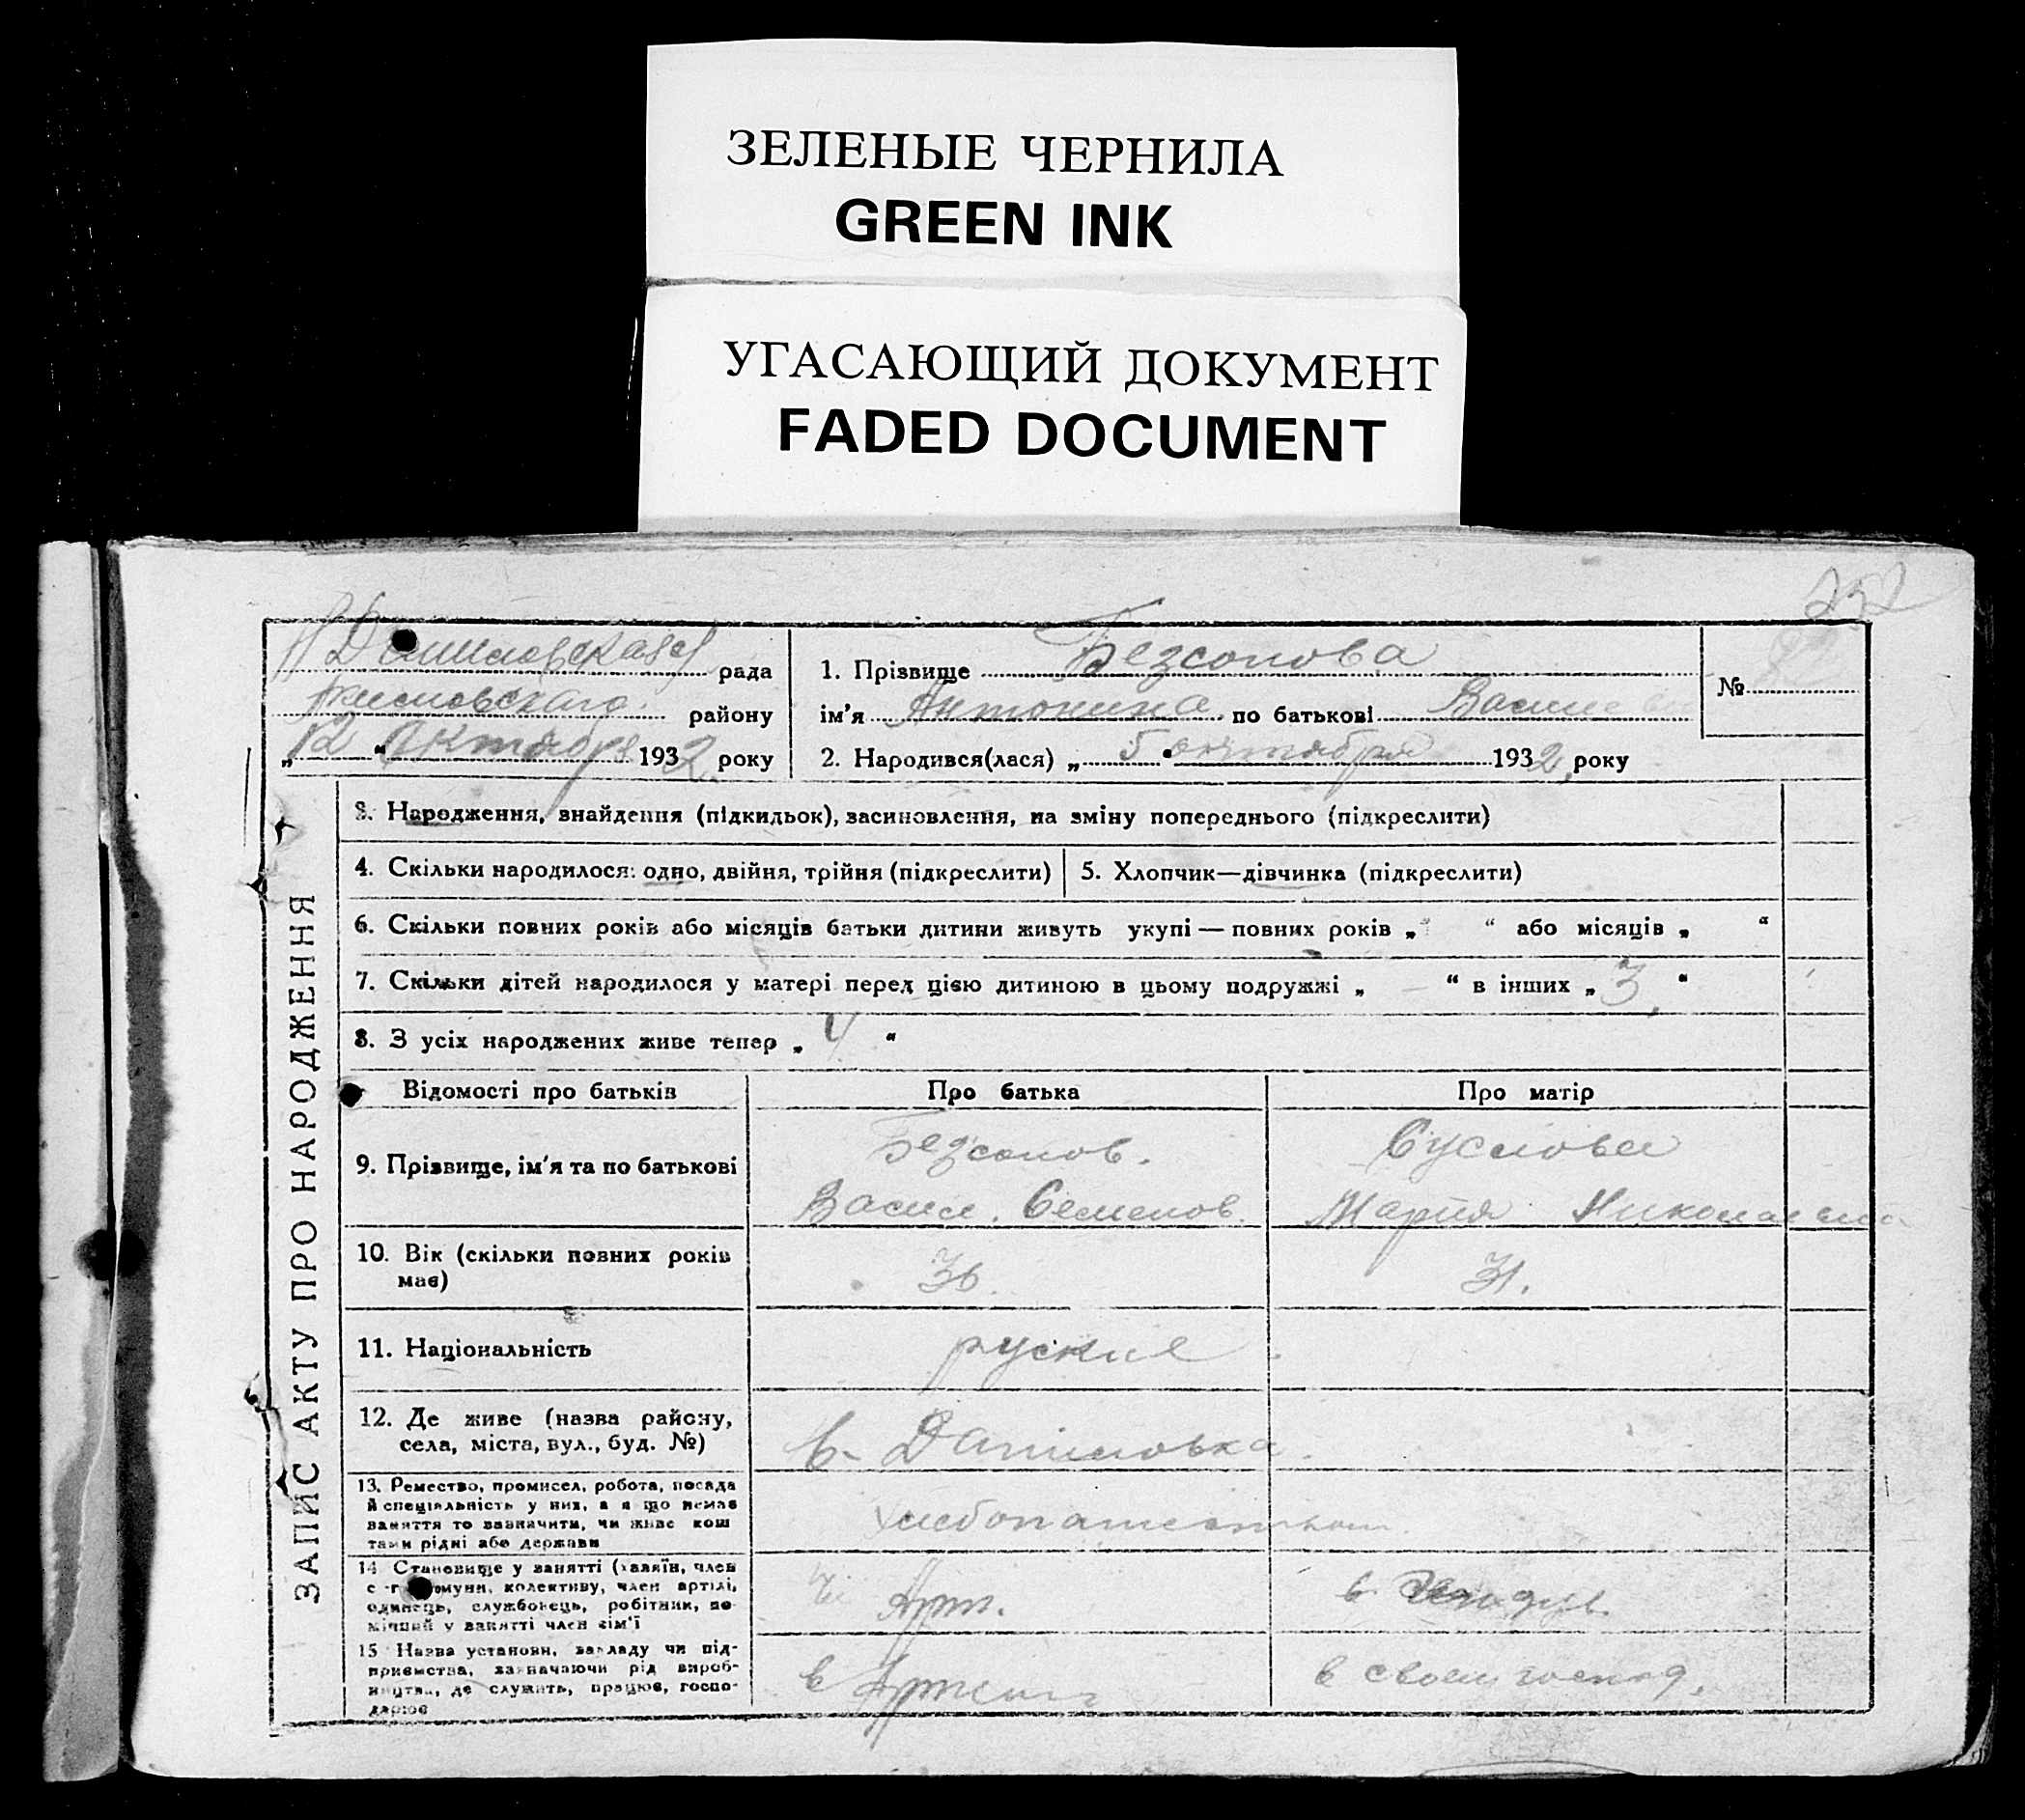 ЗЕЛЕНЫЕ ЧЕРНИЛА
GREEN INK
УГАСАЮЩИЙ ДОКУМЕНТ
FADED DOCUMENT
232
рада
району
„12 “ Октября 1932 року
1. Прізвище Безсонова
ім'я Антонина по батькові Василе
2. Народився(лася) „ 5 “ октября 1932, року
№
ЗАПИС АКТУ ПРО НАРОДЖЕННЯ
3. Народження, знайдення (підкидьок), засиновлення, на зміну попереднього (підкреслити)
4. Скільки народилося: одно, двійня, трійня (підкреслити)
5. Хлопчик—дівчинка (підкреслити)
6. Скільки повних років або місяців батьки дитини живуть укупі — повних років „ “ або місяців „ “
7. Скільки дітей народилося у матері перед цією дитиною в цьому подружжі „ — “ в інших „ 3 “
8. З усіх народжених живе тепер „ 4 “
Відомості про батьків
Про батька
Про матір
9. Прізвище, ім'я та по батькові
Безсонов.
Васил. Семенов.
Суслова
Мария Николаевна
10. Вік (скільки повних років
має)
36.
31.
11. Національність
руские
12. Де живе (назва району,
села, міста, вул., буд. №)
Даниловка
13. Ремество, промисел, робота, посада
й спеціяльність у них, а якщо немає
заняття то зазначити, чи живе кош
тами рідні або держави
14 Становище у занятті (хазяїн, член
с-г комуни, колективу, член артілі,
одинець, службовець, робітник, по-
мічний у занятті член сім'ї
Арт.
15 Назва установи, закладу чи під-
приємства, зазначаючи рід вироб-
ництва, де служить, працює, госпо-
дарює
в Артели
в своем господ.